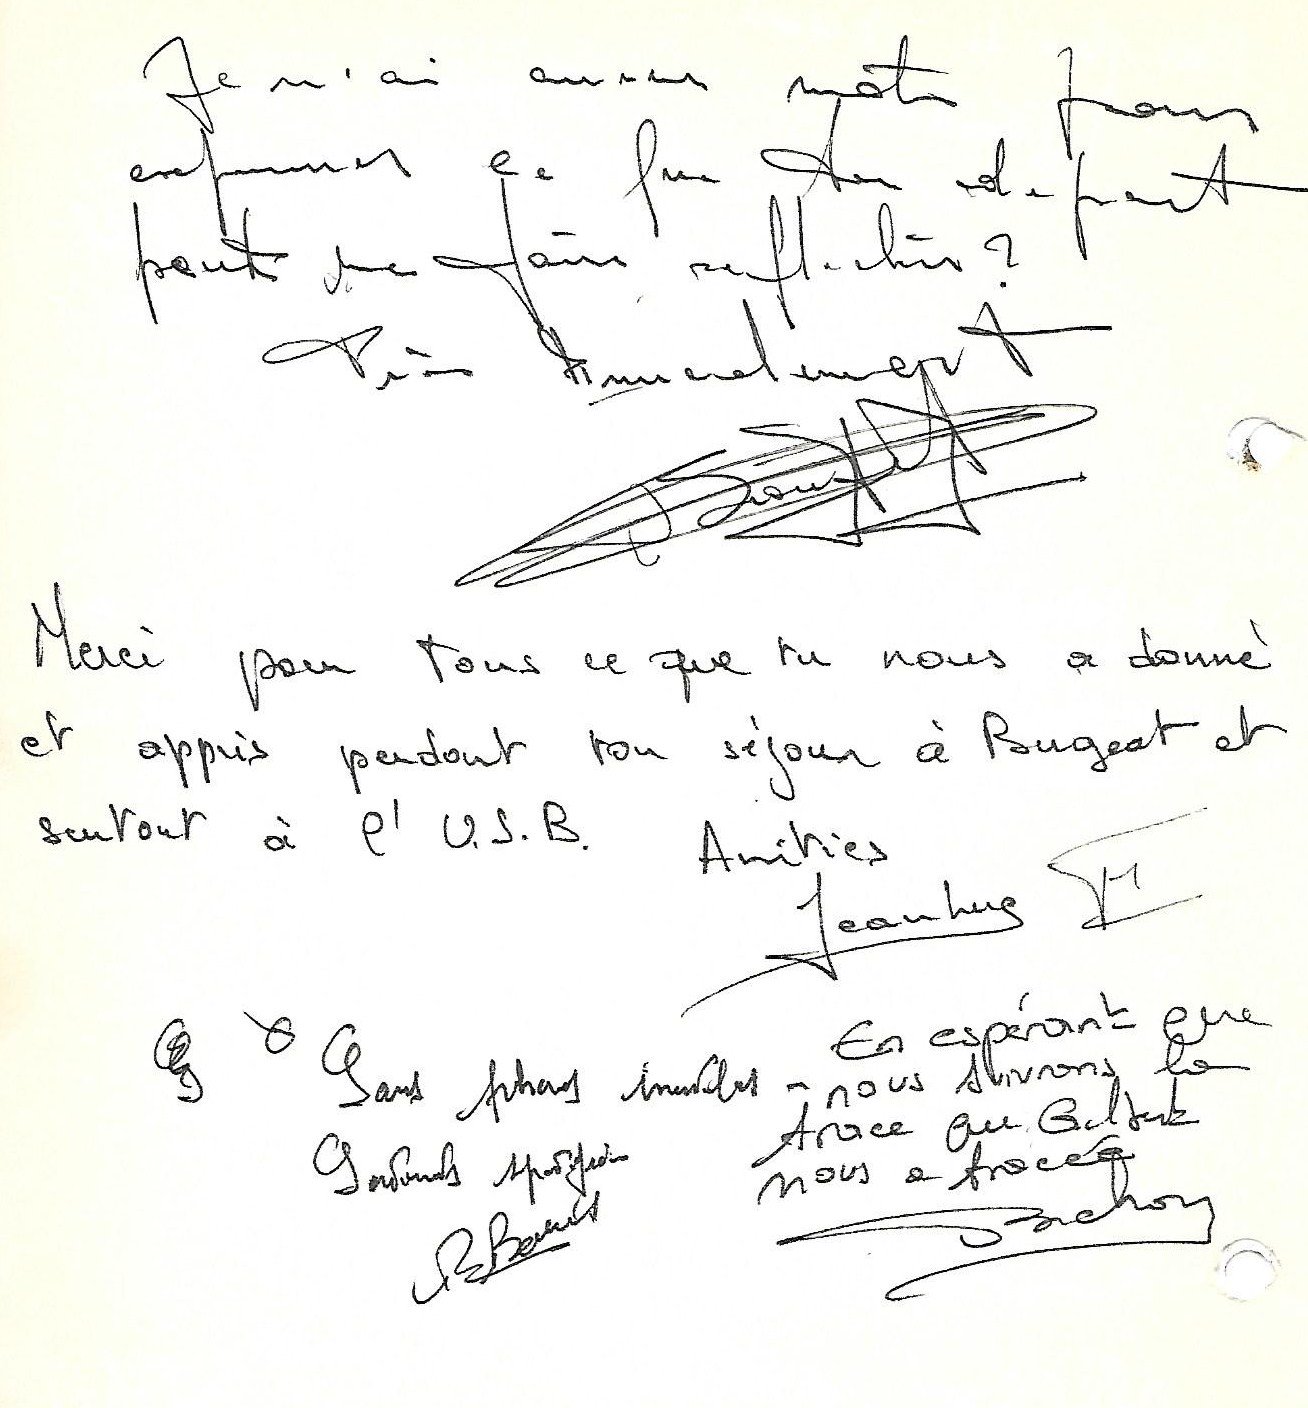 Je n'ai aucun mots pour
exprimer ce que ton depart
peut me faire reflechir?
Très Amicalement
Merci pour tous ce que tu nous a donné
et appris pendant ton séjour à Bugeat et
surtout à l'U.S.B. Amitiés
Jeanluc
Sans phrases inutiles -
sportif
En espérant que
nous suivrons la
trace que Gilbert
nous a tracée
Bachon